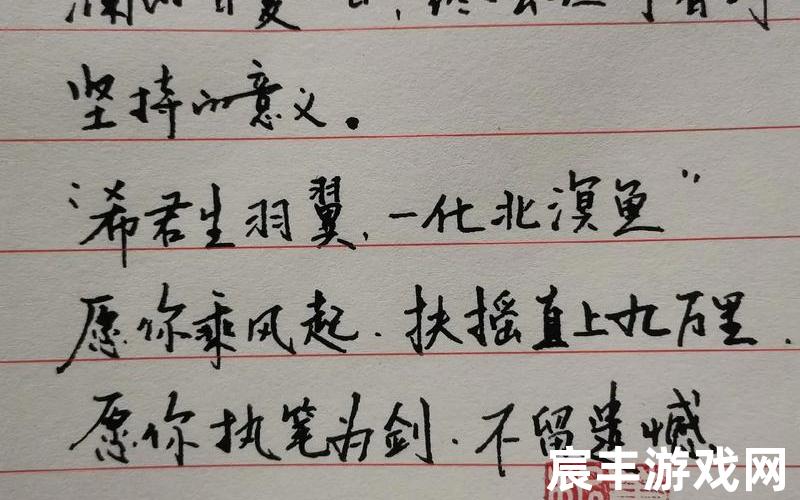 坚持的意义。
“希君生羽翼，一化北溟鱼”
愿你乘风起，扶摇直上九万里，
愿你执笔为剑，不留遗憾
宸丰游戏网